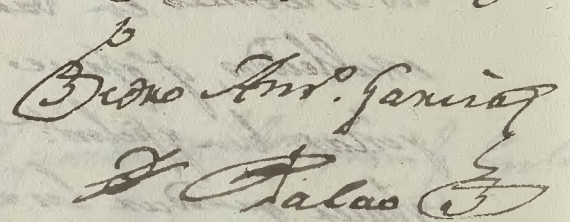 Pedro Anto. Garcia
Palao